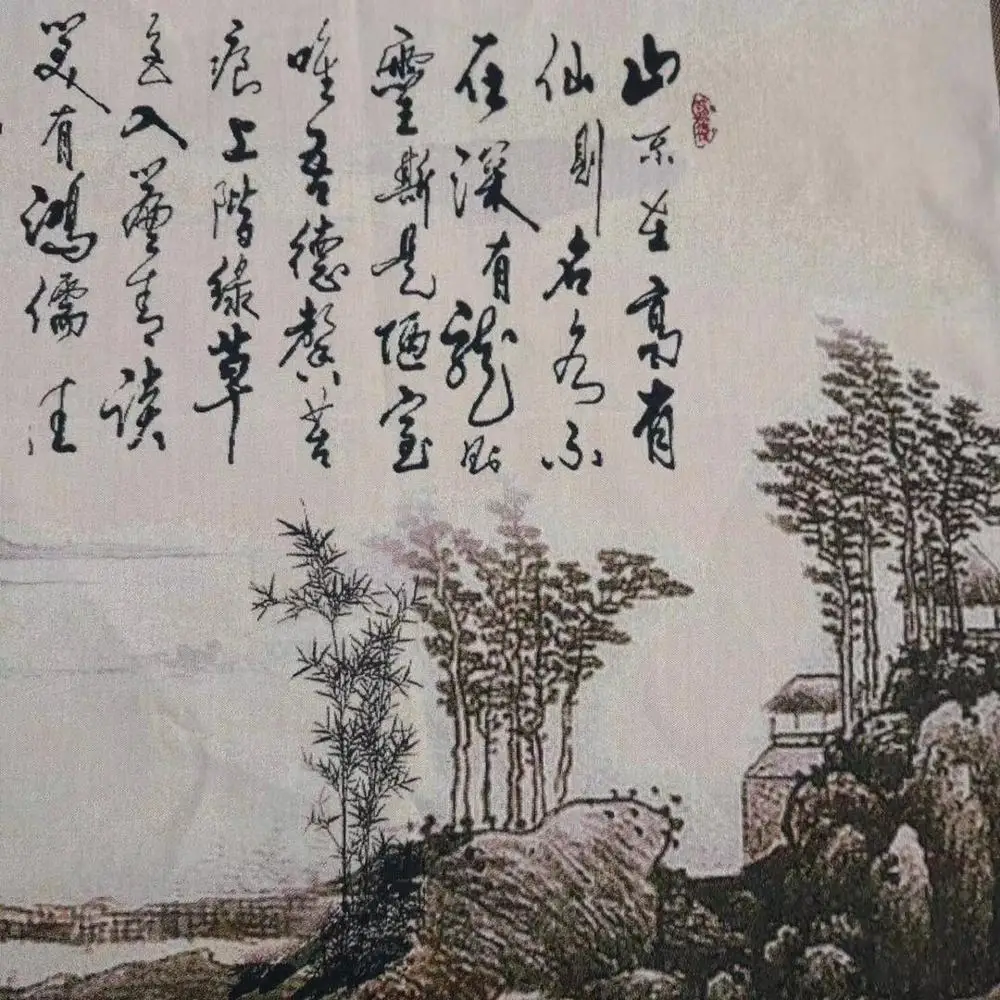 山不在高有
仙則名水不
在深有龍則
靈斯是陋室
唯吾德馨苔
痕上階綠草
色入簾青談
笑有鴻儒往